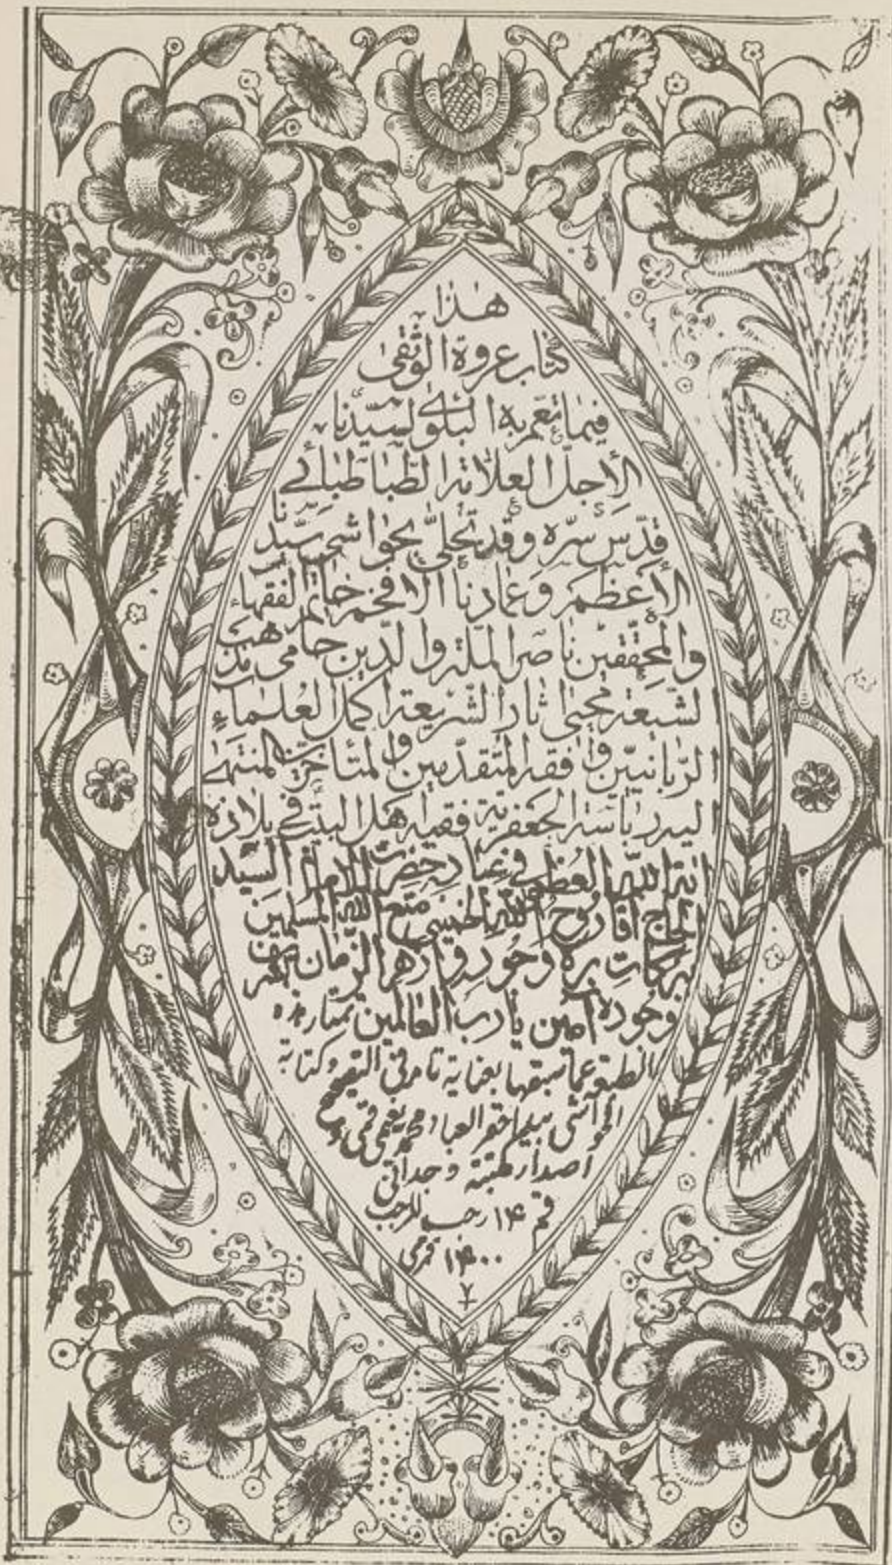 هذا
كتاب عروة الوثقى
فيما تعم به البلوى لسيدنا
الأجل العلامة الطباطبائي
قدس سره وقد تحلى بحواشي سيدنا
الأعظم وعمادنا الافخم خاتم الفقهاء
والمحققين ناصر الملة والدين حامي مذهب
الشيعة محيي آثار الشريعة اكمل العلماء
الربانيين وافقه المتقدمين والمتاخرين المنتهى
اليه رياسة الجعفرية فقيه اهل البيت في بلاده
اية الله العظمى في عباده حضرت الامام السيد
الحاج اقا روح الله الخميني متع الله المسلمين
ببركات بره وجوده وازهر الزمان بشرف
وجوده آمين يا رب العالمين تمتاز هذه
الطبعة عما سبقها بعناية تامة في التصحيح وكتابة
الحواشي بيد احقر العباد محمد قمي
اصدار مكتبة وجداني
قم ۱۴ رجب المرجب
۱۴۰۰ قمري
۷